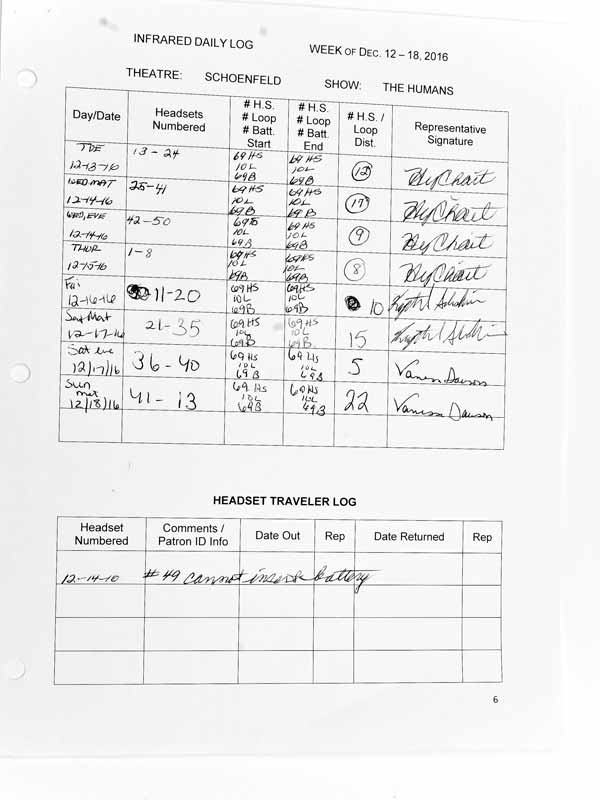 INFRARED DAILY LOG WEEK OF DEC. 12 – 18, 2016
THEATRE: SCHOENFELD SHOW: THE HUMANS
Day/Date Headsets Numbered # H.S. # Loop # Batt. Start # H.S. # Loop # Batt. End # H.S. / Loop Dist. Representative Signature
TUE 12-13-16 13-24 69HS 10L 69B 69HS 10L 69B 12
WED MAT 12-14-16 25-41 69HS 10L 69B 69HS 10L 69B 17
WED, EVE 12-14-16 42-50 10L 69B 69HS 10L 69B 9
THUR 12-15-16 1-8 69HS 10L 69B 69HS 10L 69B 8
Fri 12-16-16 11-20 69HS 10L 69B 69HS 10L 69B 10
Sat Mat 12-17-16 21-35 69HS 10L 69B 69HS 10L 69B 15
Sat eve 12/17/16 36-40 69Hs 10L 69B 69Hs 10L 69B 5 Vanessa Dawson
Sun mat 12/18/16 41-13 69Hs 10L 69B 10L 69B 22 Vanessa Dawson
HEADSET TRAVELER LOG
Headset Numbered Comments / Patron ID Info Date Out Rep Date Returned Rep
12-14-10 #49 cannot insert battery
6